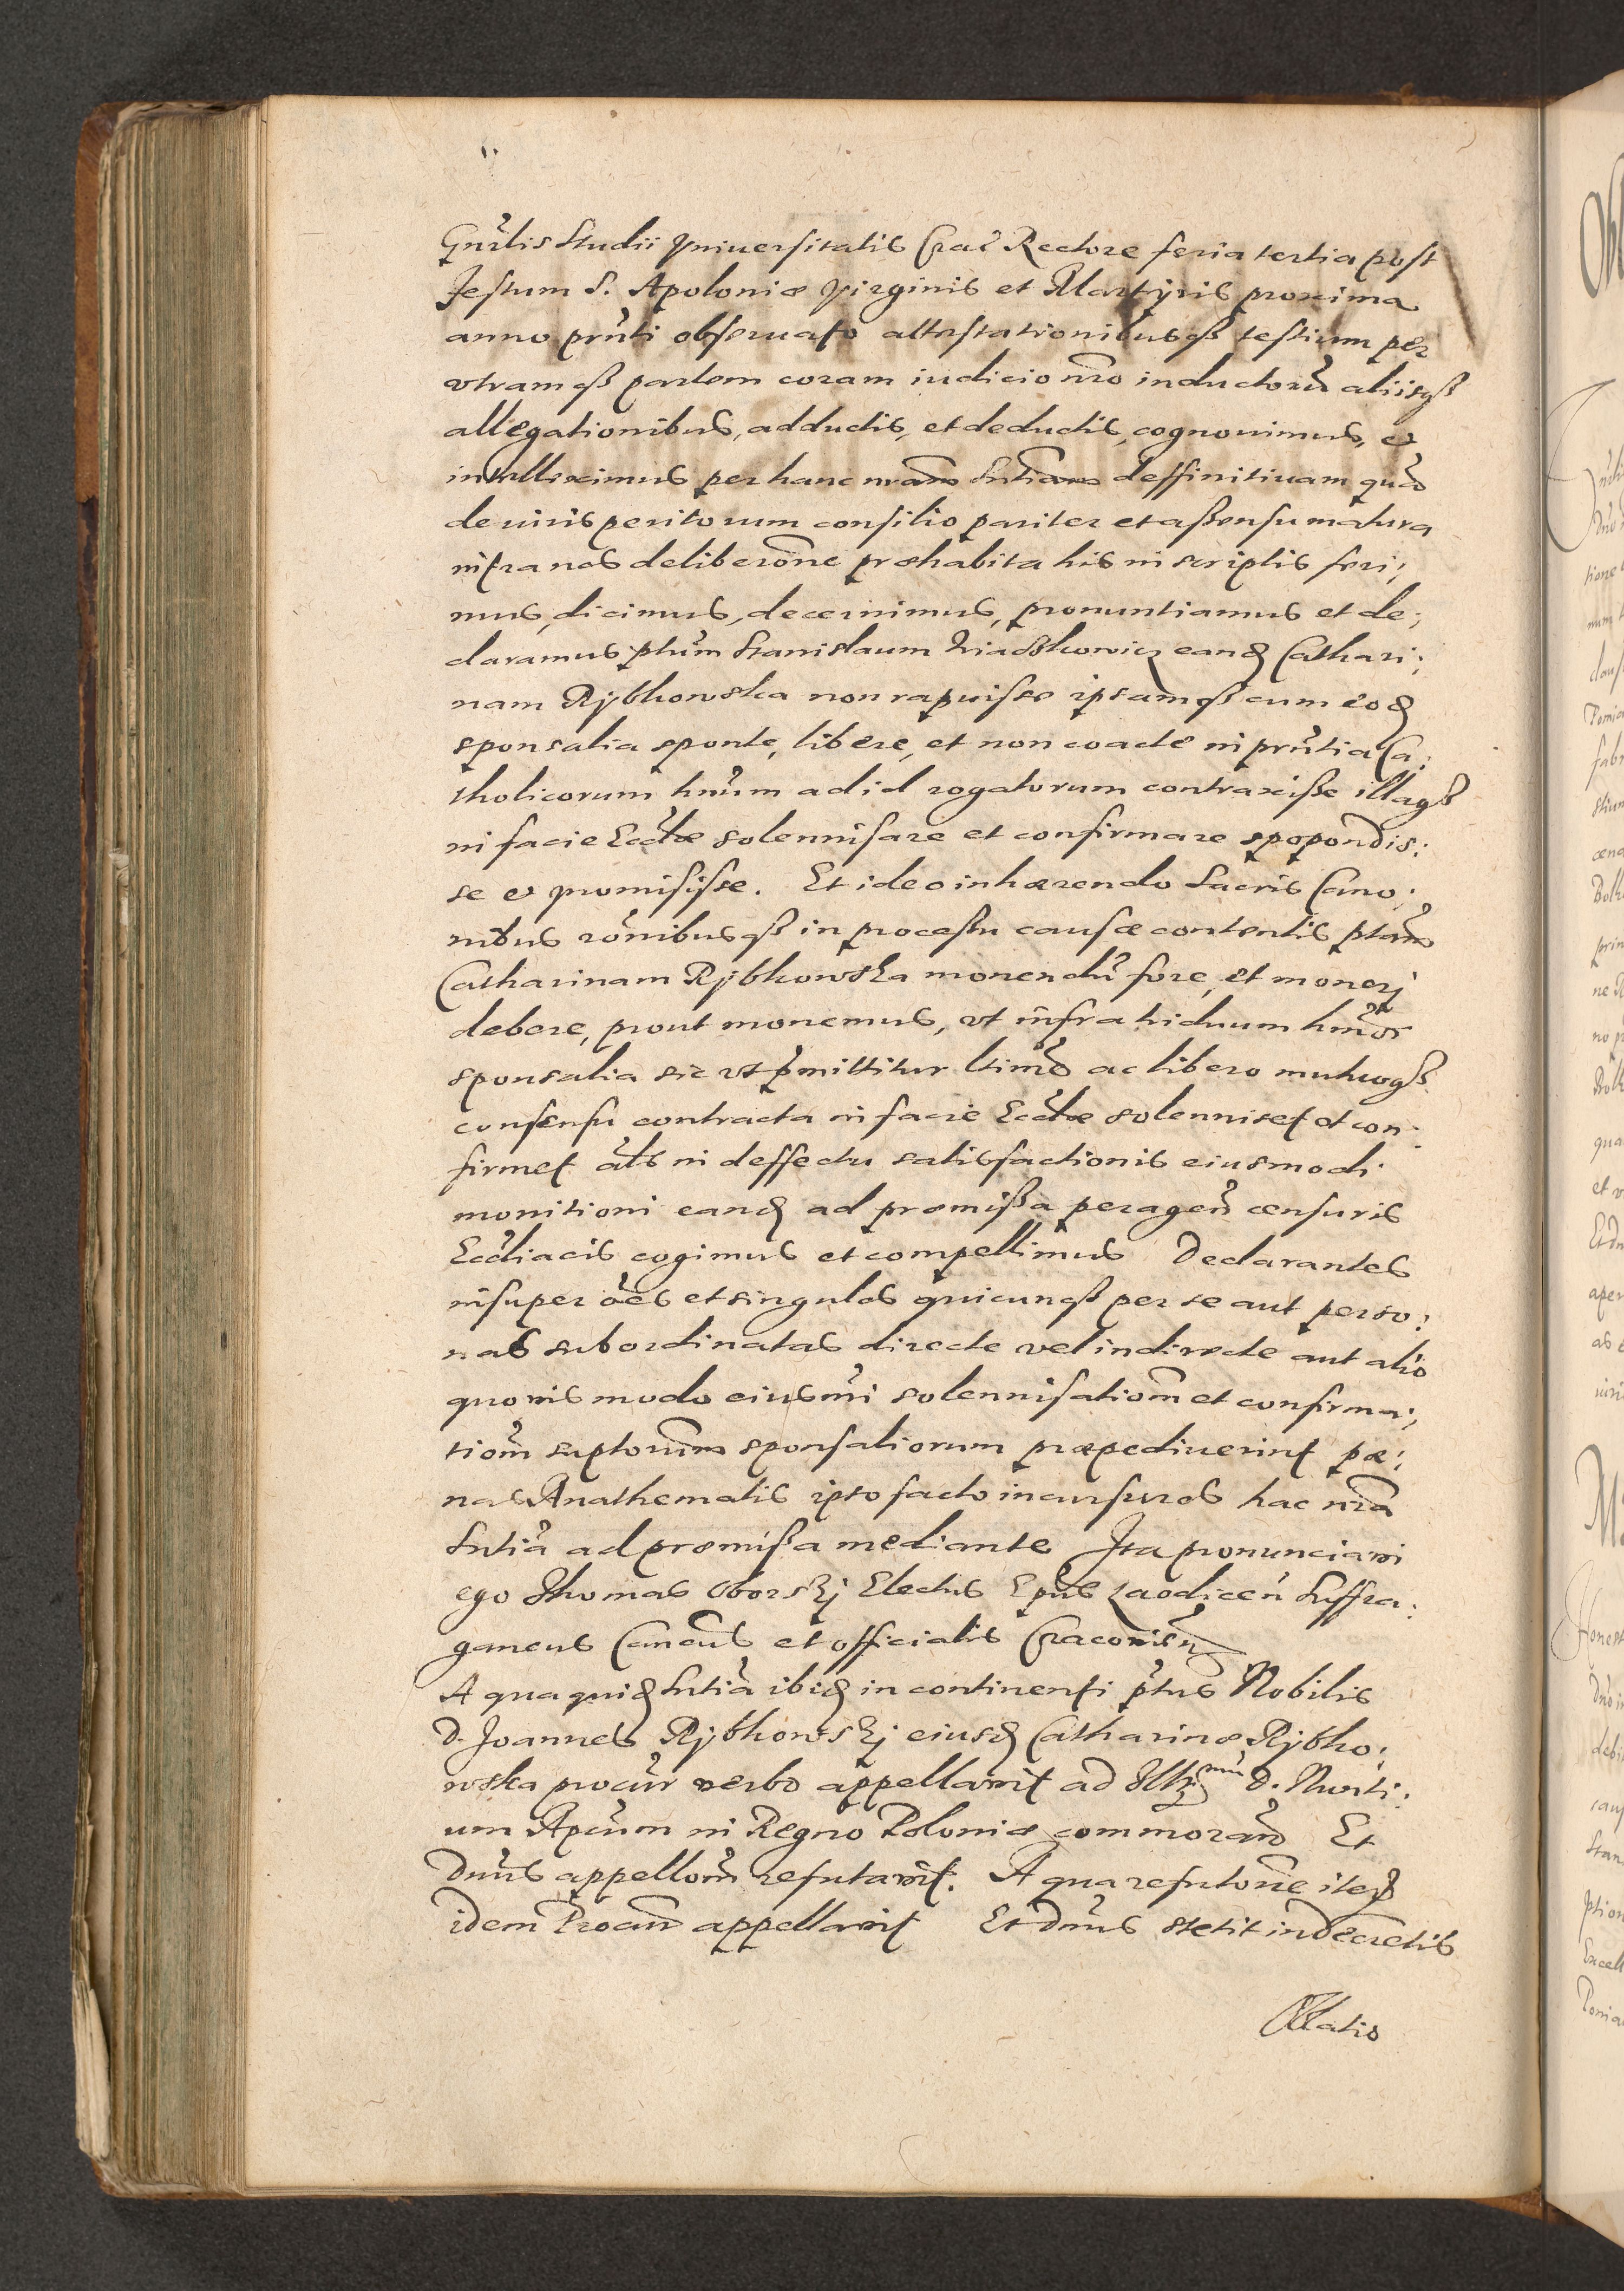 Gnrlis Studii Vniuersitatis Crac Rectore feria tertia post
Festum S. Apoloniæ Virginis et Martyris proxima
anno prnti obseruato attestationibusqß testium per
vtramqß partem coram iudicio nro inductoru aliisqß
allegationibus, adductis, et deductis, cognouimus, et
intelleximus per hanc nram sntiam deffinitiuam quã
de iuris peritorum consilio pariter et aßensu matura
intra nos deliberone præhabita his in scriptis feri;
mus, dicimus, decernimus, pronuntiamus et de;
claramus ptum Stanislaum eand Cathari;
nam Rybkowska non rapuisse ipsamqß cum eod
sponsalia sponte, libere, et non coacte in prntia Ca:
tholicorum hnum ad id rogatorum contraxiße illaqß
in facie Eccliæ solennisare et confirmare spopondis:
se et promisisse. Et ideo inhærendo Sacris Cano;
nibus ronibusqß in proceßu causæ contentis ptam
Catharinam Rybkowska monendu fore, et moneri
debere, prout monemus, vt infra triduum hmoi
sponsalia sic vt pmittitur ltime ac libero mutuoqß
consensu contracta in facie Eccliæ solenniset et con:
firmet als in deffectu satisfactionis eiusmodi
monitioni eand ad præmißa peragen censuris
Eccliacis cogimus et compellimus Declarantes
insuper oes et singulos quicunqß per se aut perso:
nas subordinatas directe vel indirecte aut alio
quouis modo eiusmi solennisatiom et confirma;
tiom suptorum sponsaliorum præpediuerint pæ:
nas Anathematis ipso facto incursuros hac nra
Sntia ad præmißa mediante Ita pronunciaui
ego Thomas Oborskj Electus Epus Laodiceñ Suffra:
ganeus Cancus et officialis Cracouien
A qua quid Sntia ibid in continenti ptus Nobilis
D. Joannes Rybkowskj eiusd Catharinæ Rybko:
wska procur verbo appellauit ad Illr mũ D. Nunti:
um Apcum in Regno Poloniæ commorañ Et
Dnus appellom refutauit. A qua refutone iterũ
idem Procur appellauit Et Dnus stetit in Decretis
Oblatio